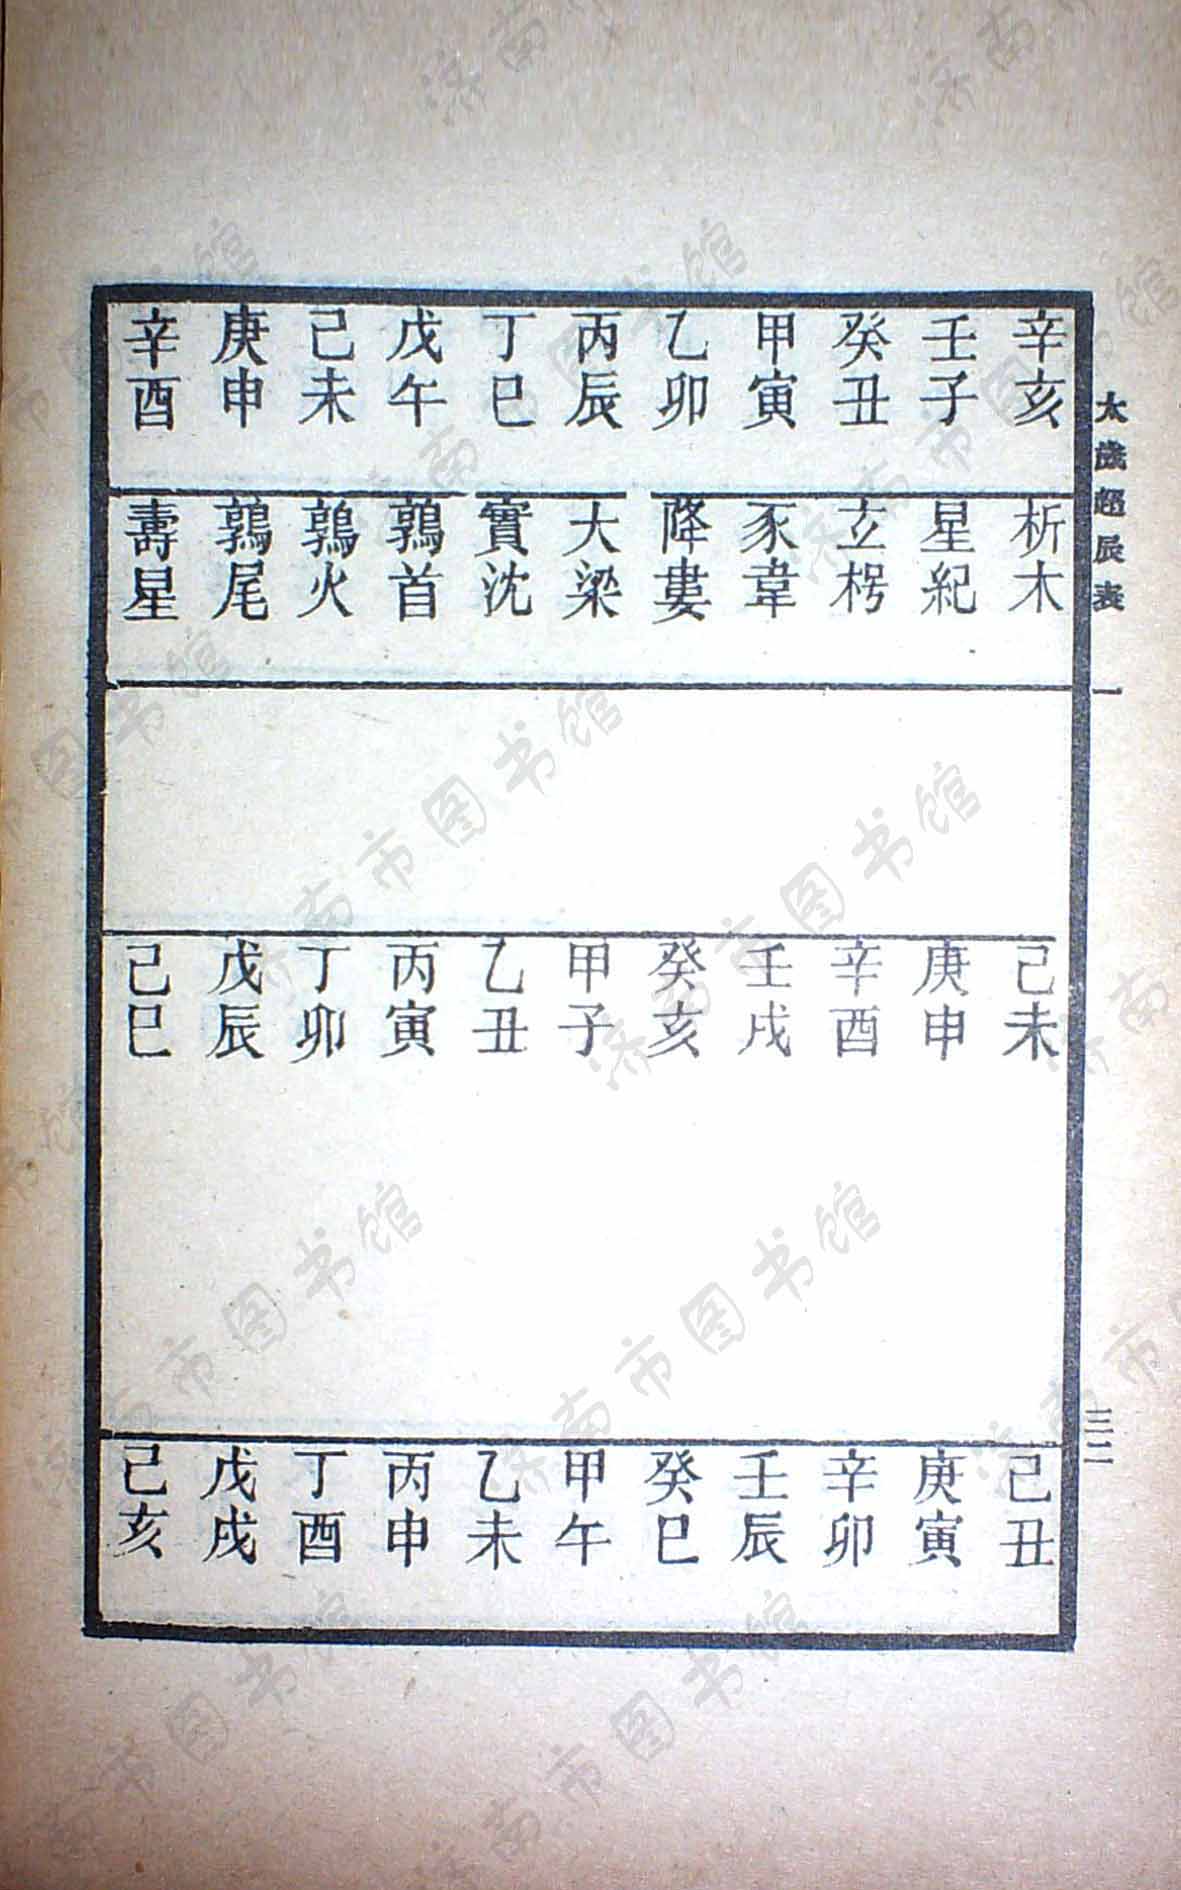 太歲超辰表 一 三二
辛亥 析木 己未 己丑
壬子 星紀 庚申 庚寅
癸丑 玄枵 辛酉 辛卯
甲寅 豕韋 壬戌 壬辰
乙卯 降婁 癸亥 癸巳
丙辰 大梁 甲子 甲午
丁巳 實沈 乙丑 乙未
戊午 鶉首 丙寅 丙申
己未 鶉火 丁卯 丁酉
庚申 鶉尾 戊辰 戊戌
辛酉 壽星 己巳 己亥
济南市图书馆